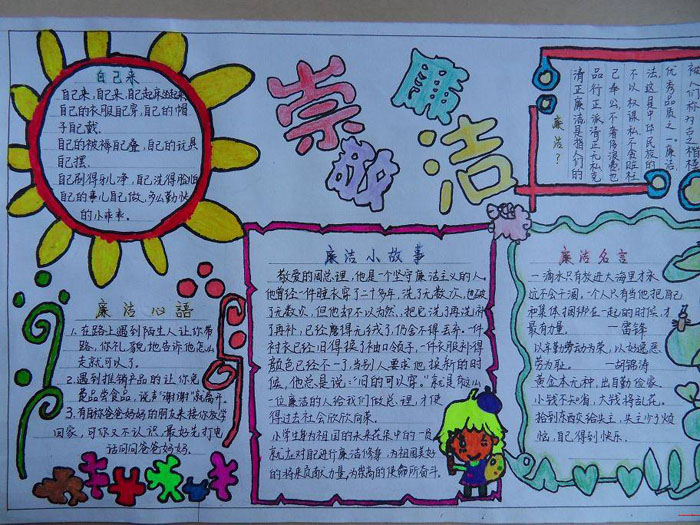 自己来
自己来,自己来,自己起床坐起来
自己的衣服自己穿,自己的帽
子自己戴.
自己的被褥自己叠,自己的玩具
自己摆.
自己刷得牙儿净,自己洗得脸
自己的事儿自己做,多么勤快
的小乖乖.
崇敬廉洁
被人们称
优秀品质之一廉洁
法这是中华民族的
不以权谋私不贪赃枉
己奉公不奢侈浪费也
品行正派清正无私克
清正廉洁是指人们的
廉洁?
廉洁心語
1.在路上遇到陌生人让你带
路,你礼貌地告诉他怎么
走就可以了.
2.遇到推销产品的让你免
费品劳食品,说声"谢谢"就离开.
3.有自称爸爸妈妈的朋友来接你放学
回家,可你又不认识,最好先打电
话问问爸爸妈妈.
廉洁小故事
敬爱的周总理,他是一个坚守廉洁主义的人.
他曾经一件睡衣穿了二十多年,洗了无数次,也破
了无数次,但他却不以为然,把它洗了再洗,补
了再补,已经磨得
衬衣已经旧得换了袖口领子,一件衣服补得
颜色已经不一了,当别人要求他换新的时
候,他总是说:"旧的可以穿."就是
一位廉洁的人给我们做总理,才使
得过去社会欣欣向荣.
小学生身为祖国的未来花朵中的一员
就应对自己进行廉洁修养,为祖国美好
的将来贡献力量,为崇高的使命所奋斗.
廉洁名言
一滴水只有放进大海里才永
远不会干涸,一个人只有当他把自己
和集体捆绑在一起的时候,才
最有力量. ——雷锋
以辛勤劳动为荣,以好逸恶
劳为耻. ——胡锦涛
黄金本无种,出自勤俭家.
小钱不知省,大钱将乱花.
拾到东西交给失主,失主少了烦
恼,自己得到快乐.